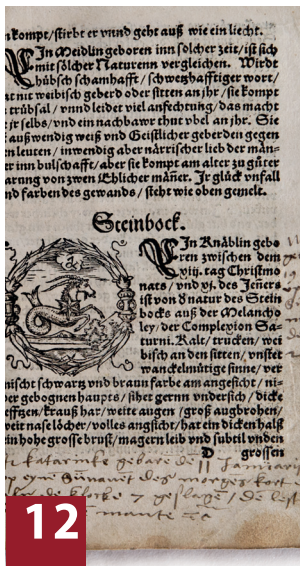 kompt/stirbt er vnnd geht auß wie ein liecht.
In Meidlin geboren inn sölcher zeit/ist sich
mit sölcher Naturenn vergleichen. Wirdt
hübsch schamhafft/schwetzhafftiger wort/
nit weibisch geberd oder sitten an jhr/sie kompt
trübsal/vnnd leidet viel anfechtung/das macht
jr selbs/vnd ein nachbawr thut vbel an jhr. Sie
außwendig weiß vnd Geistlicher geberden gegen
leuten/inwendig aber närrischer lieb der män-
er inn bulschafft/aber sie kompt am alter zu güter
narung von zwen Ehlicher mäñer. Jr glück vnfall
nd farben des gewands/steht wie oben gemelt.
Steinbock.
In Knäblin gebo
ren zwischen dem
xiij. tag Christmo
nats/vnd xj. des Jeners
ist von d natur des Stein
bocks auß der Melancho
ley/der Complexion Sa-
turni. Kalt/trucken/wei
bisch an den sitten/vnstet
wanckelmütige sinne/ver
mischt schwartz vnd braun farbe am angesicht/ni-
der gebognen haupts/sihet gernn vndersich/dicke
lefftzen/krauß har/weite augen/groß augbrohen/
weit nase löcher/volles angsicht/hat ein dicken halß
ein hohe grosse brust/magern leib vnd subtil vnden
D grossen
katarinke gebore de 11 Januarii
morges kort
de klocke 7 geslagen/
12